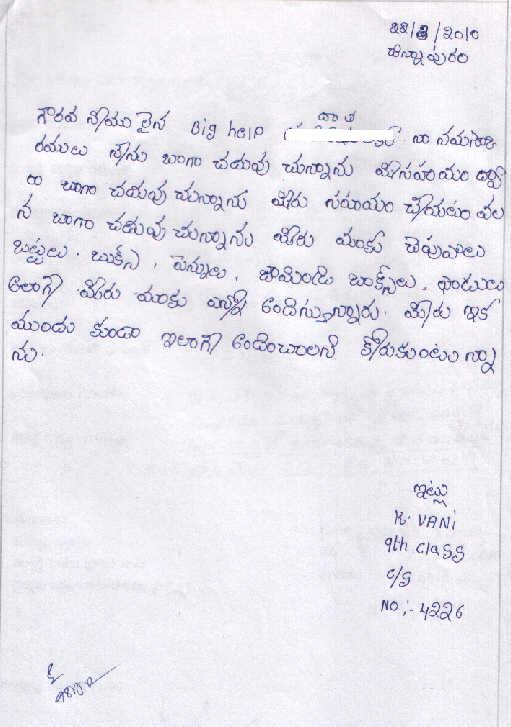 28/8/2010
చిన్నాపురం
దాత
గౌరవ నీయు లైన Big help నా నమస్కా
రములు నేను బాగా చదువు చున్నాను మీసహాయం ద్వా
రా బాగా చదువు చున్నాను మీరు సహాయం చేయటం వల
న బాగా చదువు చున్నాను మీరు మాకు చెప్పులు
బట్టలు. బుక్స్, పెన్నులు, జామెండ్రి బాక్స్‌లు,
అలాగే మీరు మాకు ఎన్నో అందిస్తున్నారు. మీరు ఇక
ముందు కుడా ఇలాగే అందించాలని కోరుకుంటు న్నా
ను.
ఇట్లు
K. VANI
9th class
c/s
NO:- 4226